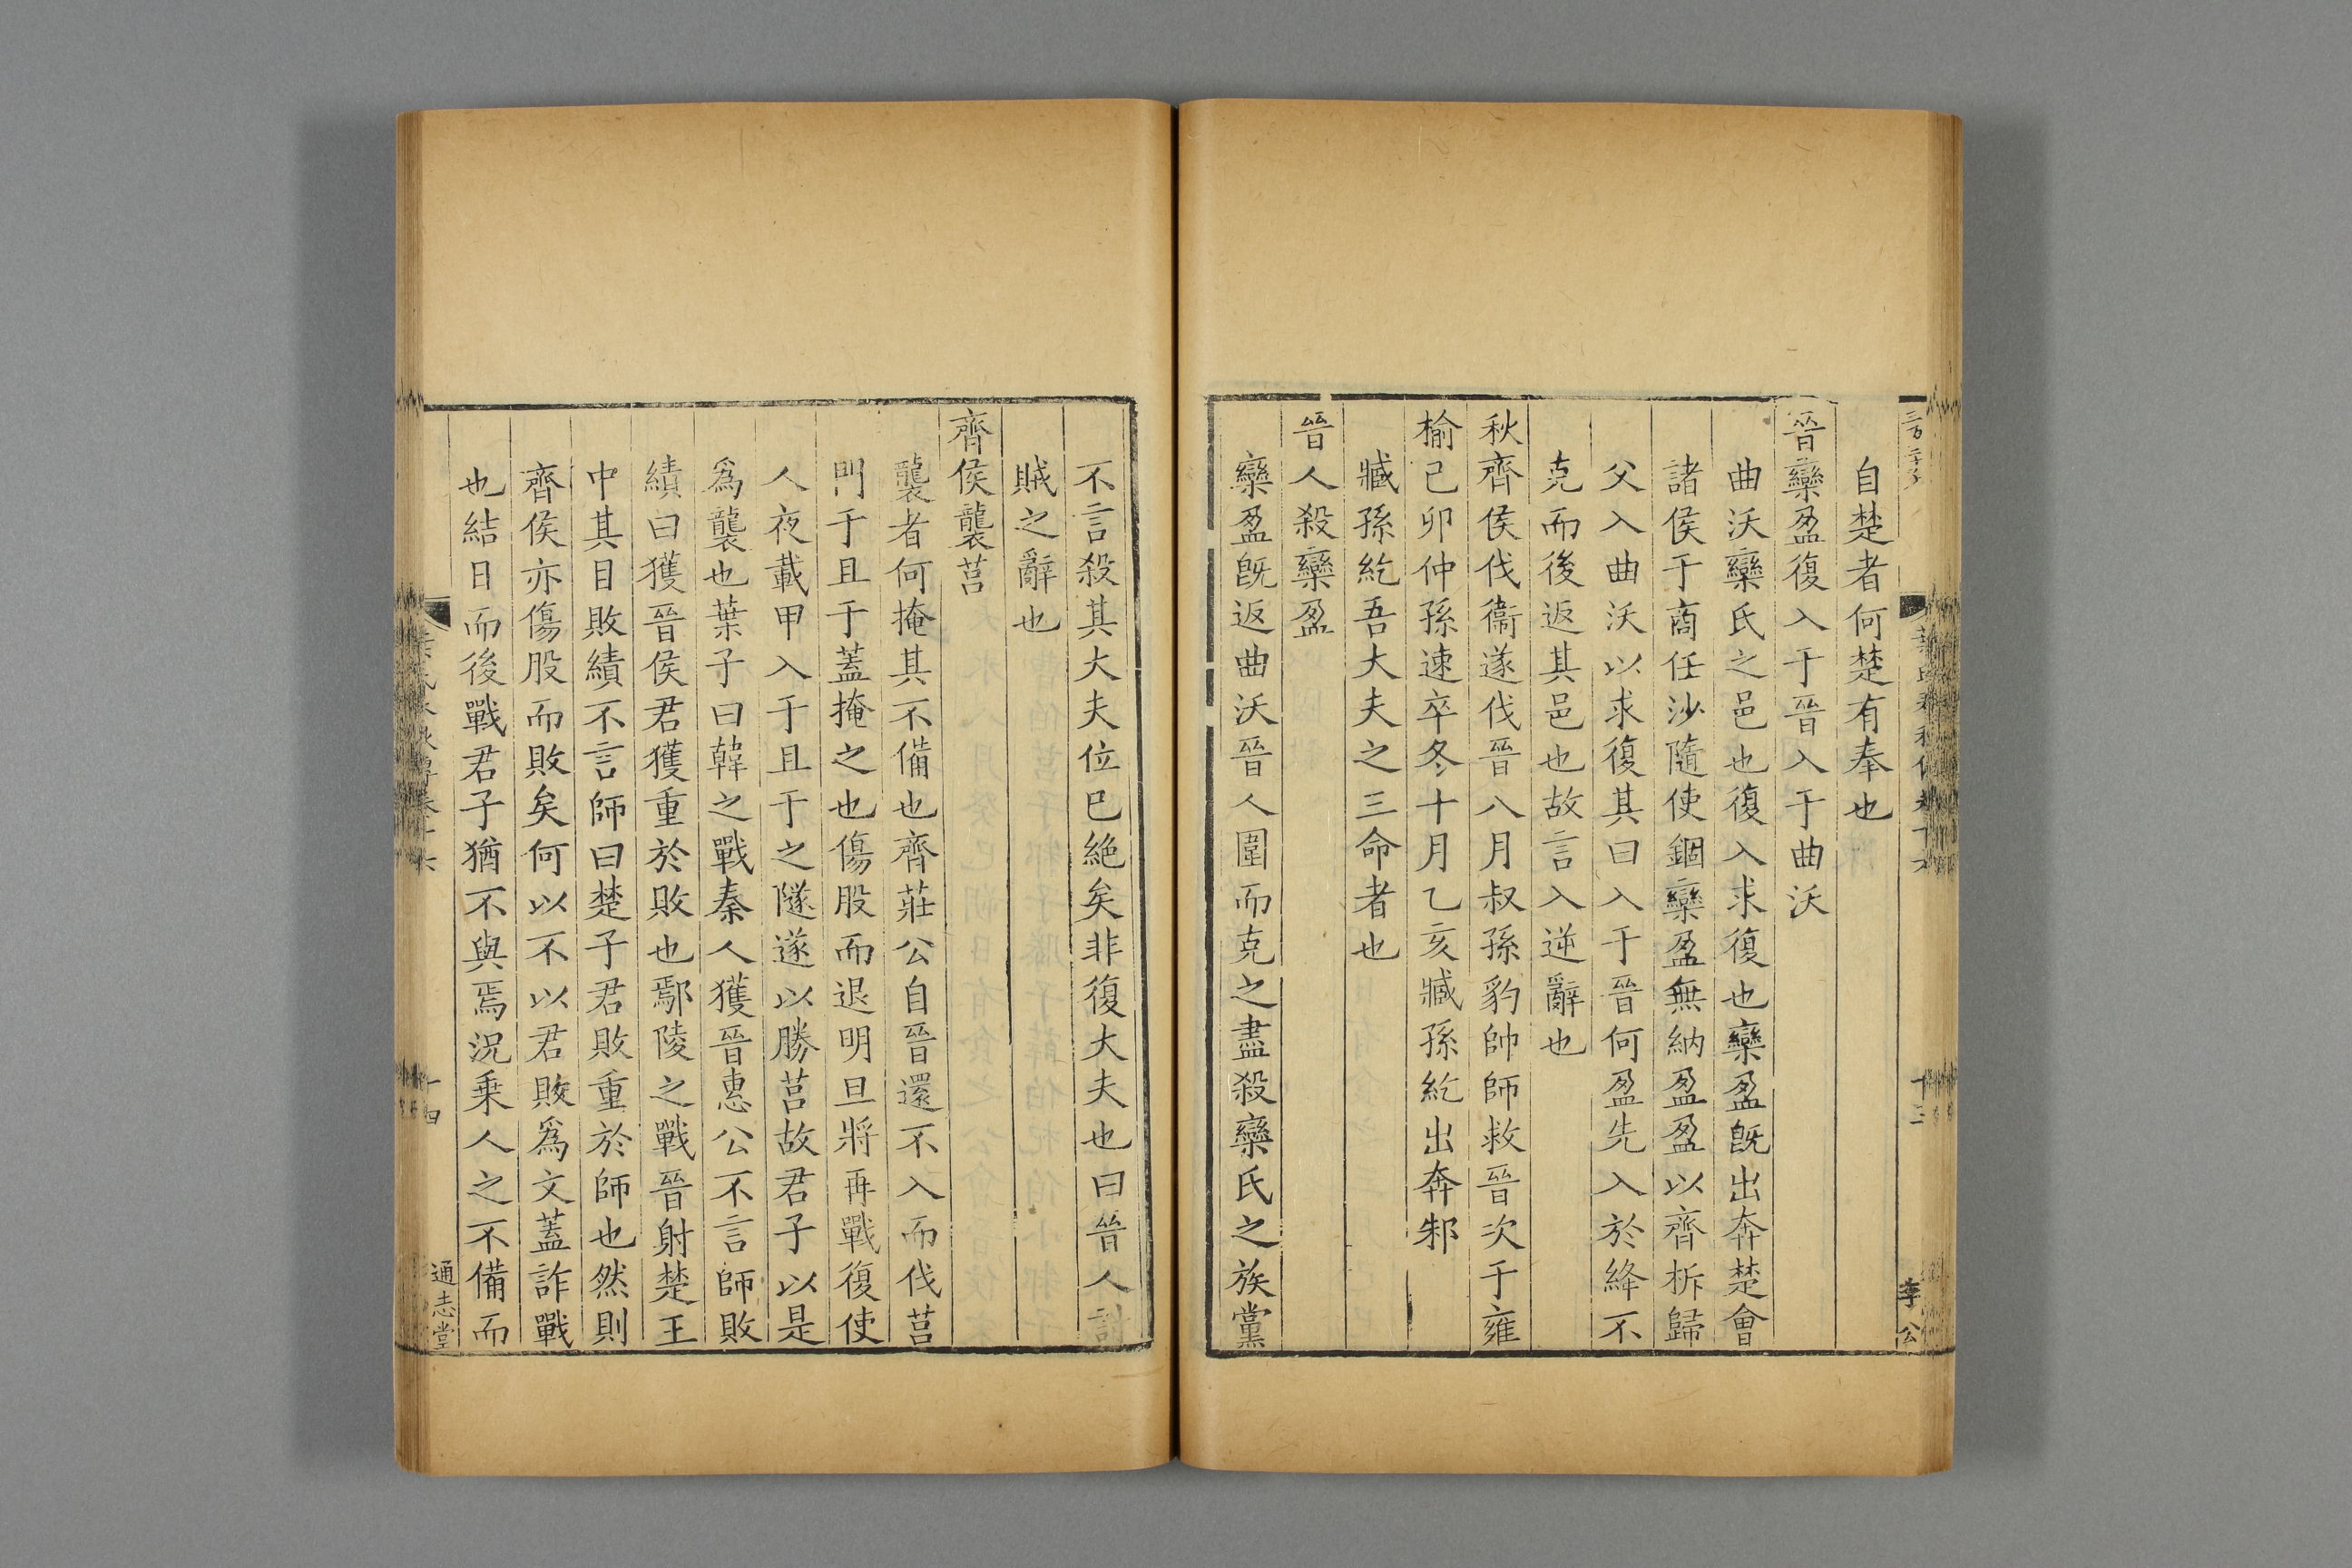 自楚者何楚有奉也
晉欒盈復入于晉入于曲沃
曲沃欒氏之邑也復入求復也欒盈旣出奔楚會
諸侯于商任沙隨使錮欒盈無納盈盈以齊柝歸
父入曲沃以求復其曰入于晉何盈先入於絳不
克而後返其邑也故言入逆辭也
秋齊侯伐衞遂伐晉八月叔孫豹帥師救晉次于雍
榆己卯仲孫速卒冬十月乙亥臧孫紇出奔邾
臧孫紇吾大夫之三命者也
晉人殺欒盈
欒盈旣返曲沃晉人圍而克之盡殺欒氏之族黨
不言殺其大夫位已絕矣非復大夫也曰晉人討
賊之辭也
齊侯襲莒
襲者何掩其不備也齊莊公自晉還不入而伐莒
門于且于蓋掩之也傷股而退明旦將再戰復使
人夜載甲入于且于之隧遂以勝莒故君子以是
爲襲也葉子曰韓之戰秦人獲晉惠公不言師敗
績曰獲晉侯君獲重於敗也鄢陵之戰晉射楚王
中其目敗績不言師曰楚子君敗重於師也然則
齊侯亦傷股而敗矣何以不以君敗爲文蓋詐戰
也結日而後戰君子猶不與焉況乗人之不備而
通志堂